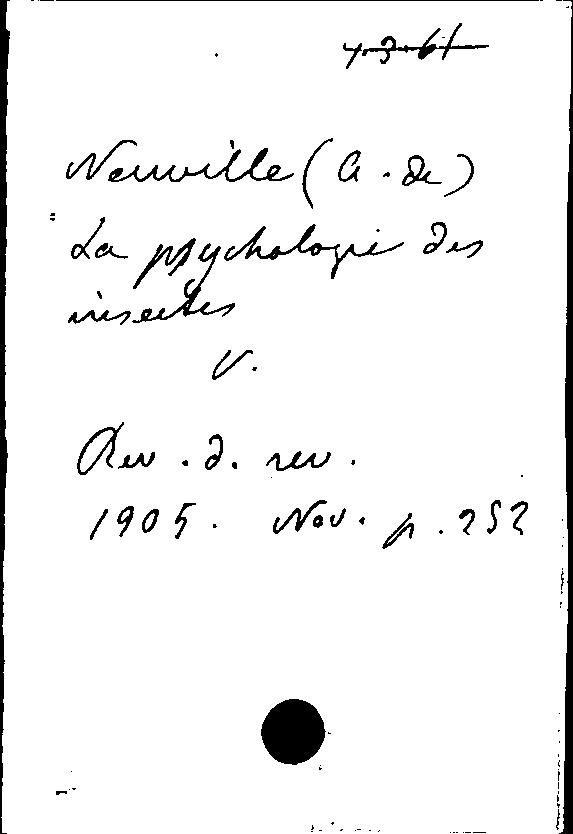 Neuville (A. de)
La psychologie des
insectes
V.
Rev. d. rev.
1905. Nov. p. 252